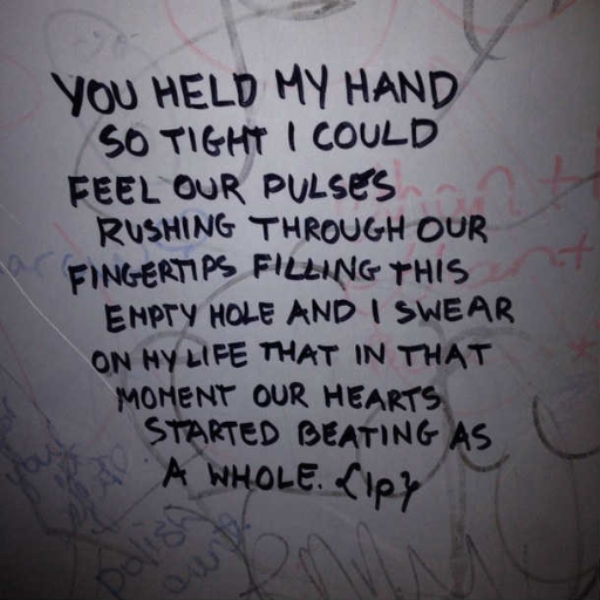 YOU HELD MY HAND
SO TIGHT I COULD
FEEL OUR PULSES
RUSHING THROUGH OUR
FINGERTIPS FILLING THIS
EMPTY HOLE AND I SWEAR
ON MY LIFE THAT IN THAT
MOMENT OUR HEARTS
STARTED BEATING AS
A WHOLE. {lp}